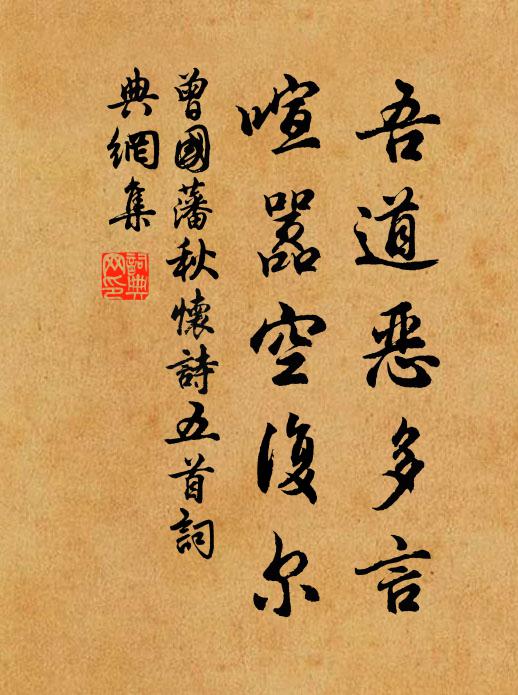 吾道恶多言
喧嚣空復尔
曾國藩秋懷詩五首詞
典網集
詞典網印